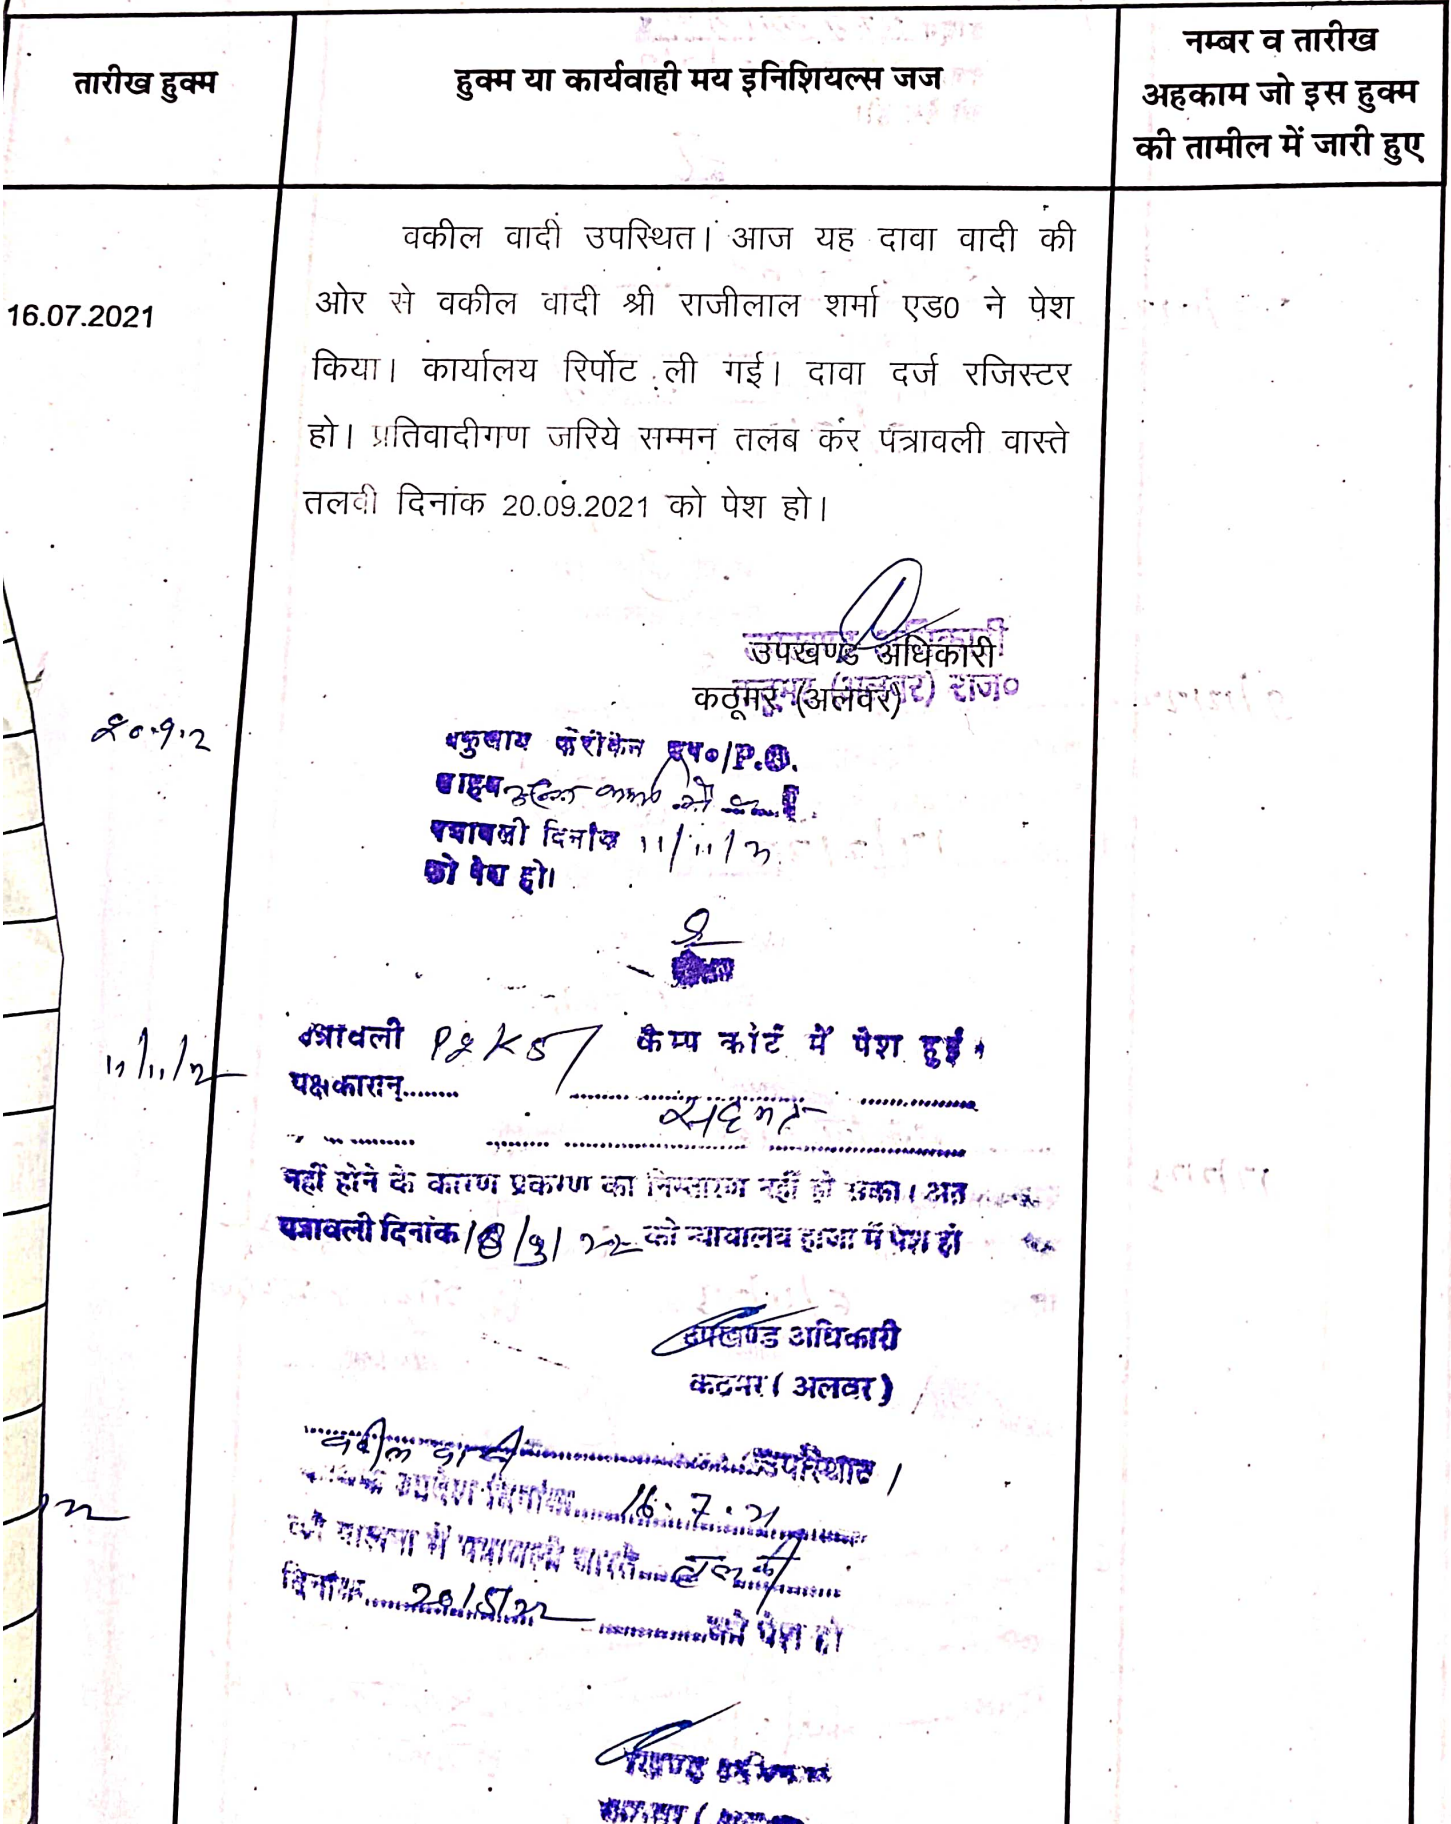 तारीख हुक्म
हुक्म या कार्यवाही मय इनिशियल्स जज
नम्बर व तारीख
अहकाम जो इस हुक्म
की तामील में जारी हुए
16.07.2021
वकील वादी उपस्थित। आज यह दावा वादी की
ओर से वकील वादी श्री राजीलाल शर्मा एड0 ने पेश
किया। कार्यालय रिर्पोट ली गई। दावा दर्ज रजिस्टर
हो। प्रतिवादीगण जरिये सम्मन तलब कर पत्रावली वास्ते
तलवी दिनांक 20.09.2021 को पेश हो।
उपखण्ड अधिकारी
कठूमर (अलवर) राज०
20.9.2
P.O.
पत्रावली दिनांक 11/11/21
को पेश हो।
11/11/21
पत्रावली कैम्प कोर्ट में पेश हुई।
पक्षकारान्........
सहमत
नहीं होने के कारण प्रकरण का निस्तारण नहीं हो सका। अत
पत्रावली दिनांक 18/3/22 को न्यायालय हाजा में पेश हो
उपखण्ड अधिकारी
कठूमर (अलवर)
वकील वादी उपस्थित।
दिनांक 16.7.21
की पालना में पत्रावली वास्ते तलवी
दिनांक 20/5/22 को पेश हो